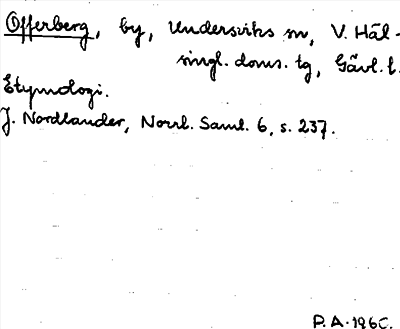 Offerberg, by, Undersviks sn, V. Häl-
singl. doms. tg, Gävl. l.
Etymologi.
J. Nordlander, Norrl. Saml. 6, s. 237.
P.A. 1960.